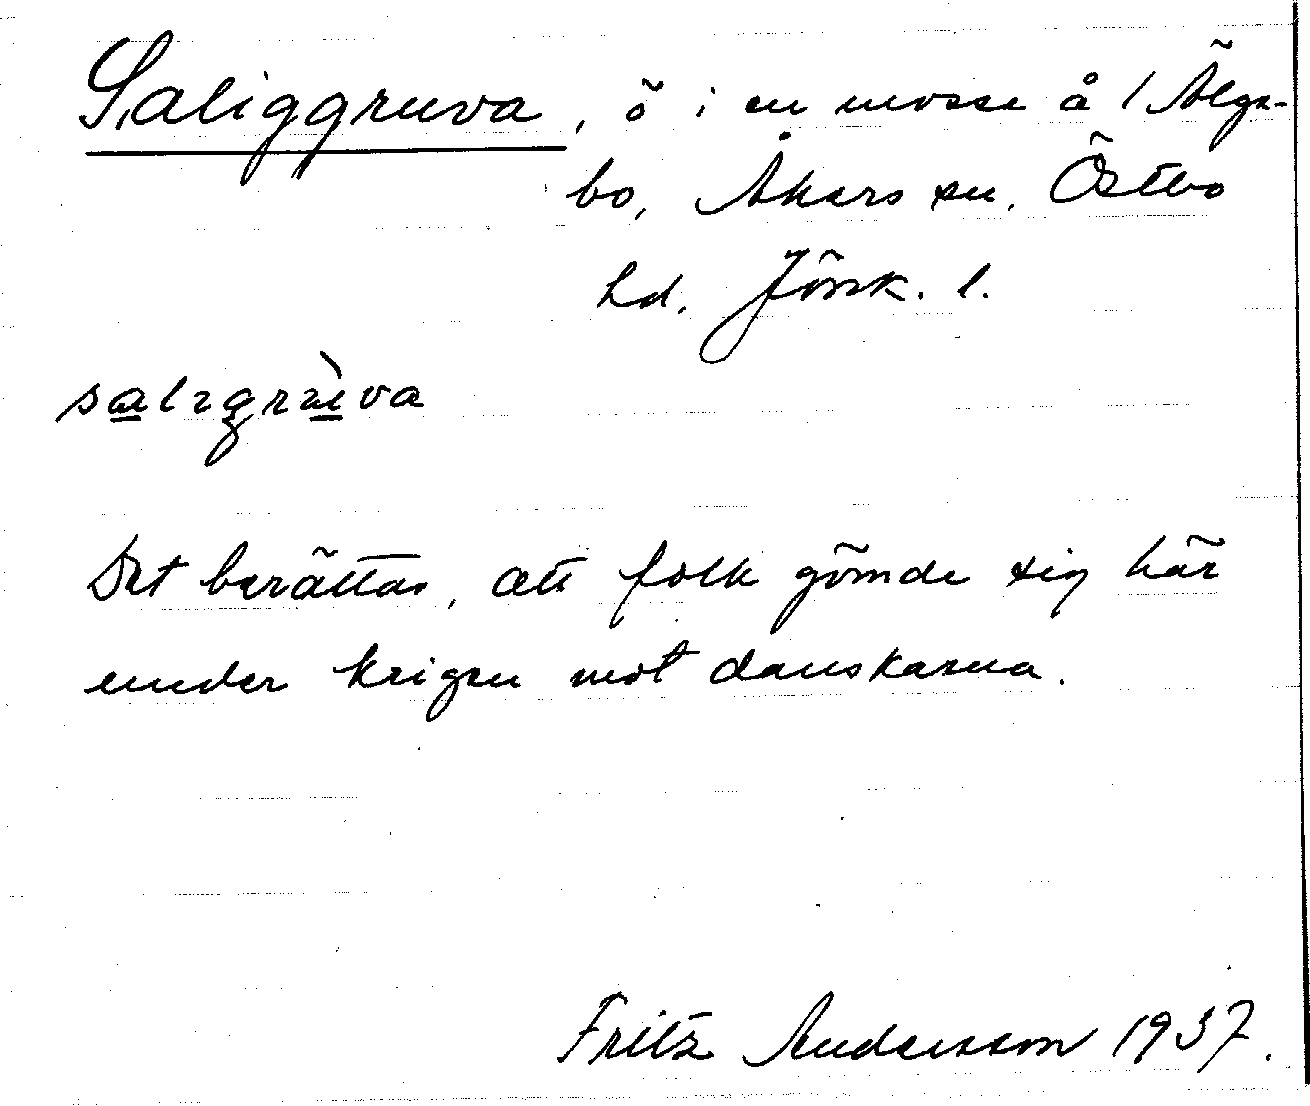 Saliggruva, ö i en mosse å 1 Älgs-
bo, Åkers sn, Östbo
hd, Jönk. l.
saligruva
Det berättas, att folk gömde sig här
under krigen mot danskarna.
Fritz Andersson 1937.